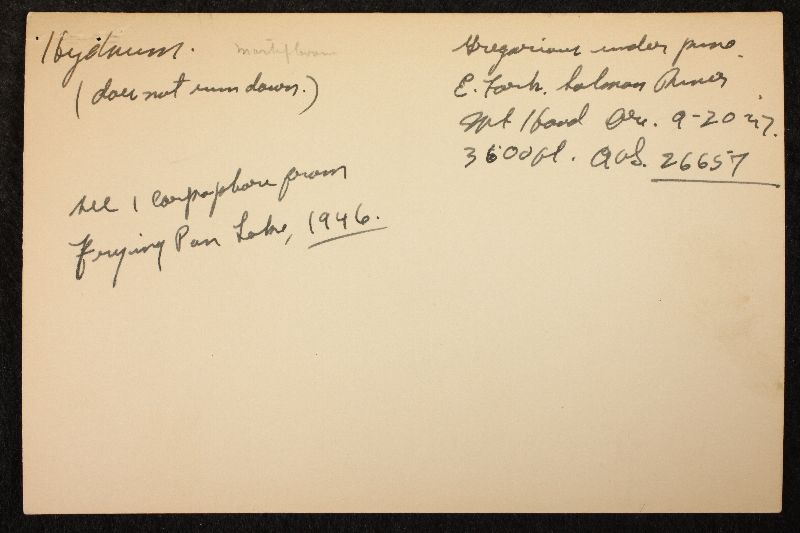 Hydnum.
(does not run down.)
see 1 carpophore from
Frying Pan Lake, 1946.
Gregarious under pine
E. Fork. Salmon River
Mt Hood Ore. 9-20-47.
3600 ft. AHS. 26657